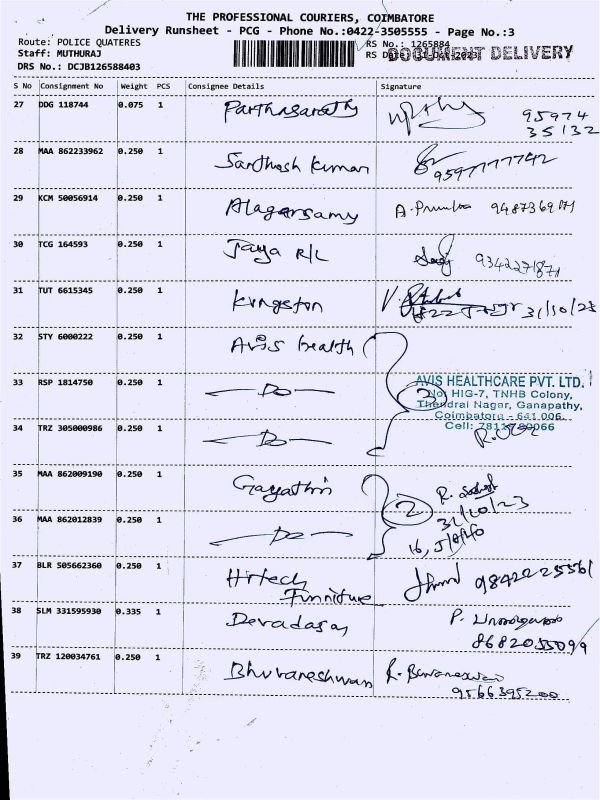 THE PROFESSIONAL COURIERS, COIMBATORE
Delivery Runsheet - PCG - Phone No.:0422-3505555 - Page No.:3
Route: POLICE QUATERES
RS No.: 1265884
Staff: MUTHURAJ
DOCUMENT DELIVERY
DRS No.: DCJB126588403
S No Consignment No Weight PCS Consignee Details Signature
27 DDG 118744 0.075 1 Parthasarathy 95974
35132
28 MAA 862233962 0.250 1 Santhosh kumar 9597777742
29 KCM 50056914 0.250 1 Alagarsamy
30 TCG 164593 0.250 1 Jaya R/L 9342271871
31 TUT 6615345 0.250 1 Kingston 31/10/23
32 STY 6000222 0.250 1 Avis health
33 RSP 1814750 0.250 1 Do 3
AVIS HEALTHCARE PVT. LTD.
No: HIG-7, TNHB Colony,
Thendral Nagar, Ganapathy,
Coimbatore - 641 006.
34 TRZ 305000986 0.250 1 Do
35 MAA 862009190 0.250 1 Gayathri
36 MAA 862012839 0.250 1 Do 2
31/10/23
37 BLR 505662360 0.250 1 Hitech
Furniture 9842225561
38 SLM 331595930 0.335 1 Devadasan
8682055099
39 TRZ 120034761 0.250 1 Bhuvaneshwari
9566395200